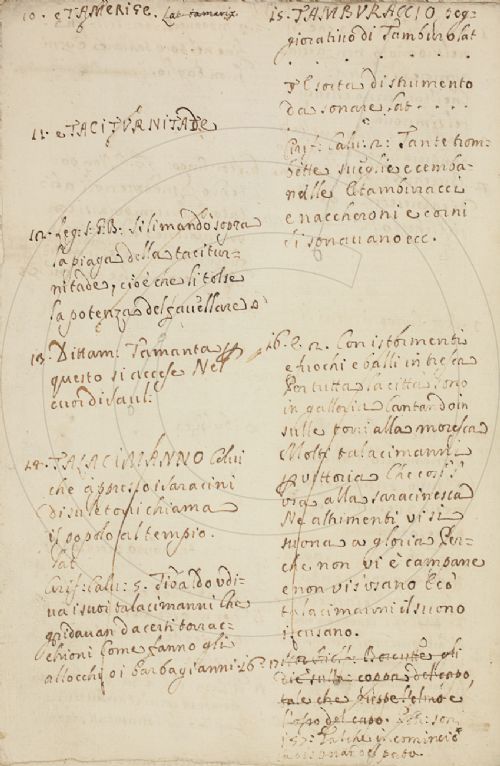 10. e TAMERIGE. Lat. tamarix
11. e TACITURNITADE
12. Leg: S. G. B: si li mandò sopra
la piaga della tacitur-
nitade, cioè che li tolse
la potenza del favellare
13. Dittam: Tamanta
questo si accese Nel
cuor di saul:
14. TALACIMANNO Colui
che appresso i saracini
di su le torri chiama
il popolo al tempio.
Lat
Cirif: Calu: 5. Tibaldo udi-
va i suoi talacimanni che
gridavan da certi torrac-
chioni Come fanno gli
allocchi o i barbagianni
15. TAMBURACCIO peg-
giorativo di Tamburo, Lat
. . . .
È sorta di strumento
da sonare Lat. . . .
Cirif: Calu: 2: Tante trom-
bette sveglie e cemba-
nelle E tamburacci
e naccheroni e corni
si sonavano ecc.
16. E. 2. Con istormenti
e giochi e balli in tresca
Per tutta la città sono
in galloria Cantando in
sulle torri alla moresca
Molti talacimanni
vittoria Che così
via alla saracinesca
Ne altrimenti vi si
suona a gloria Per-
che non vi è campane
e non vi s'usano E co'
talacimanni il suono
scusano.
16. 17.
gli
die sulla coppa del capo,
tale che
l'osso del capo.